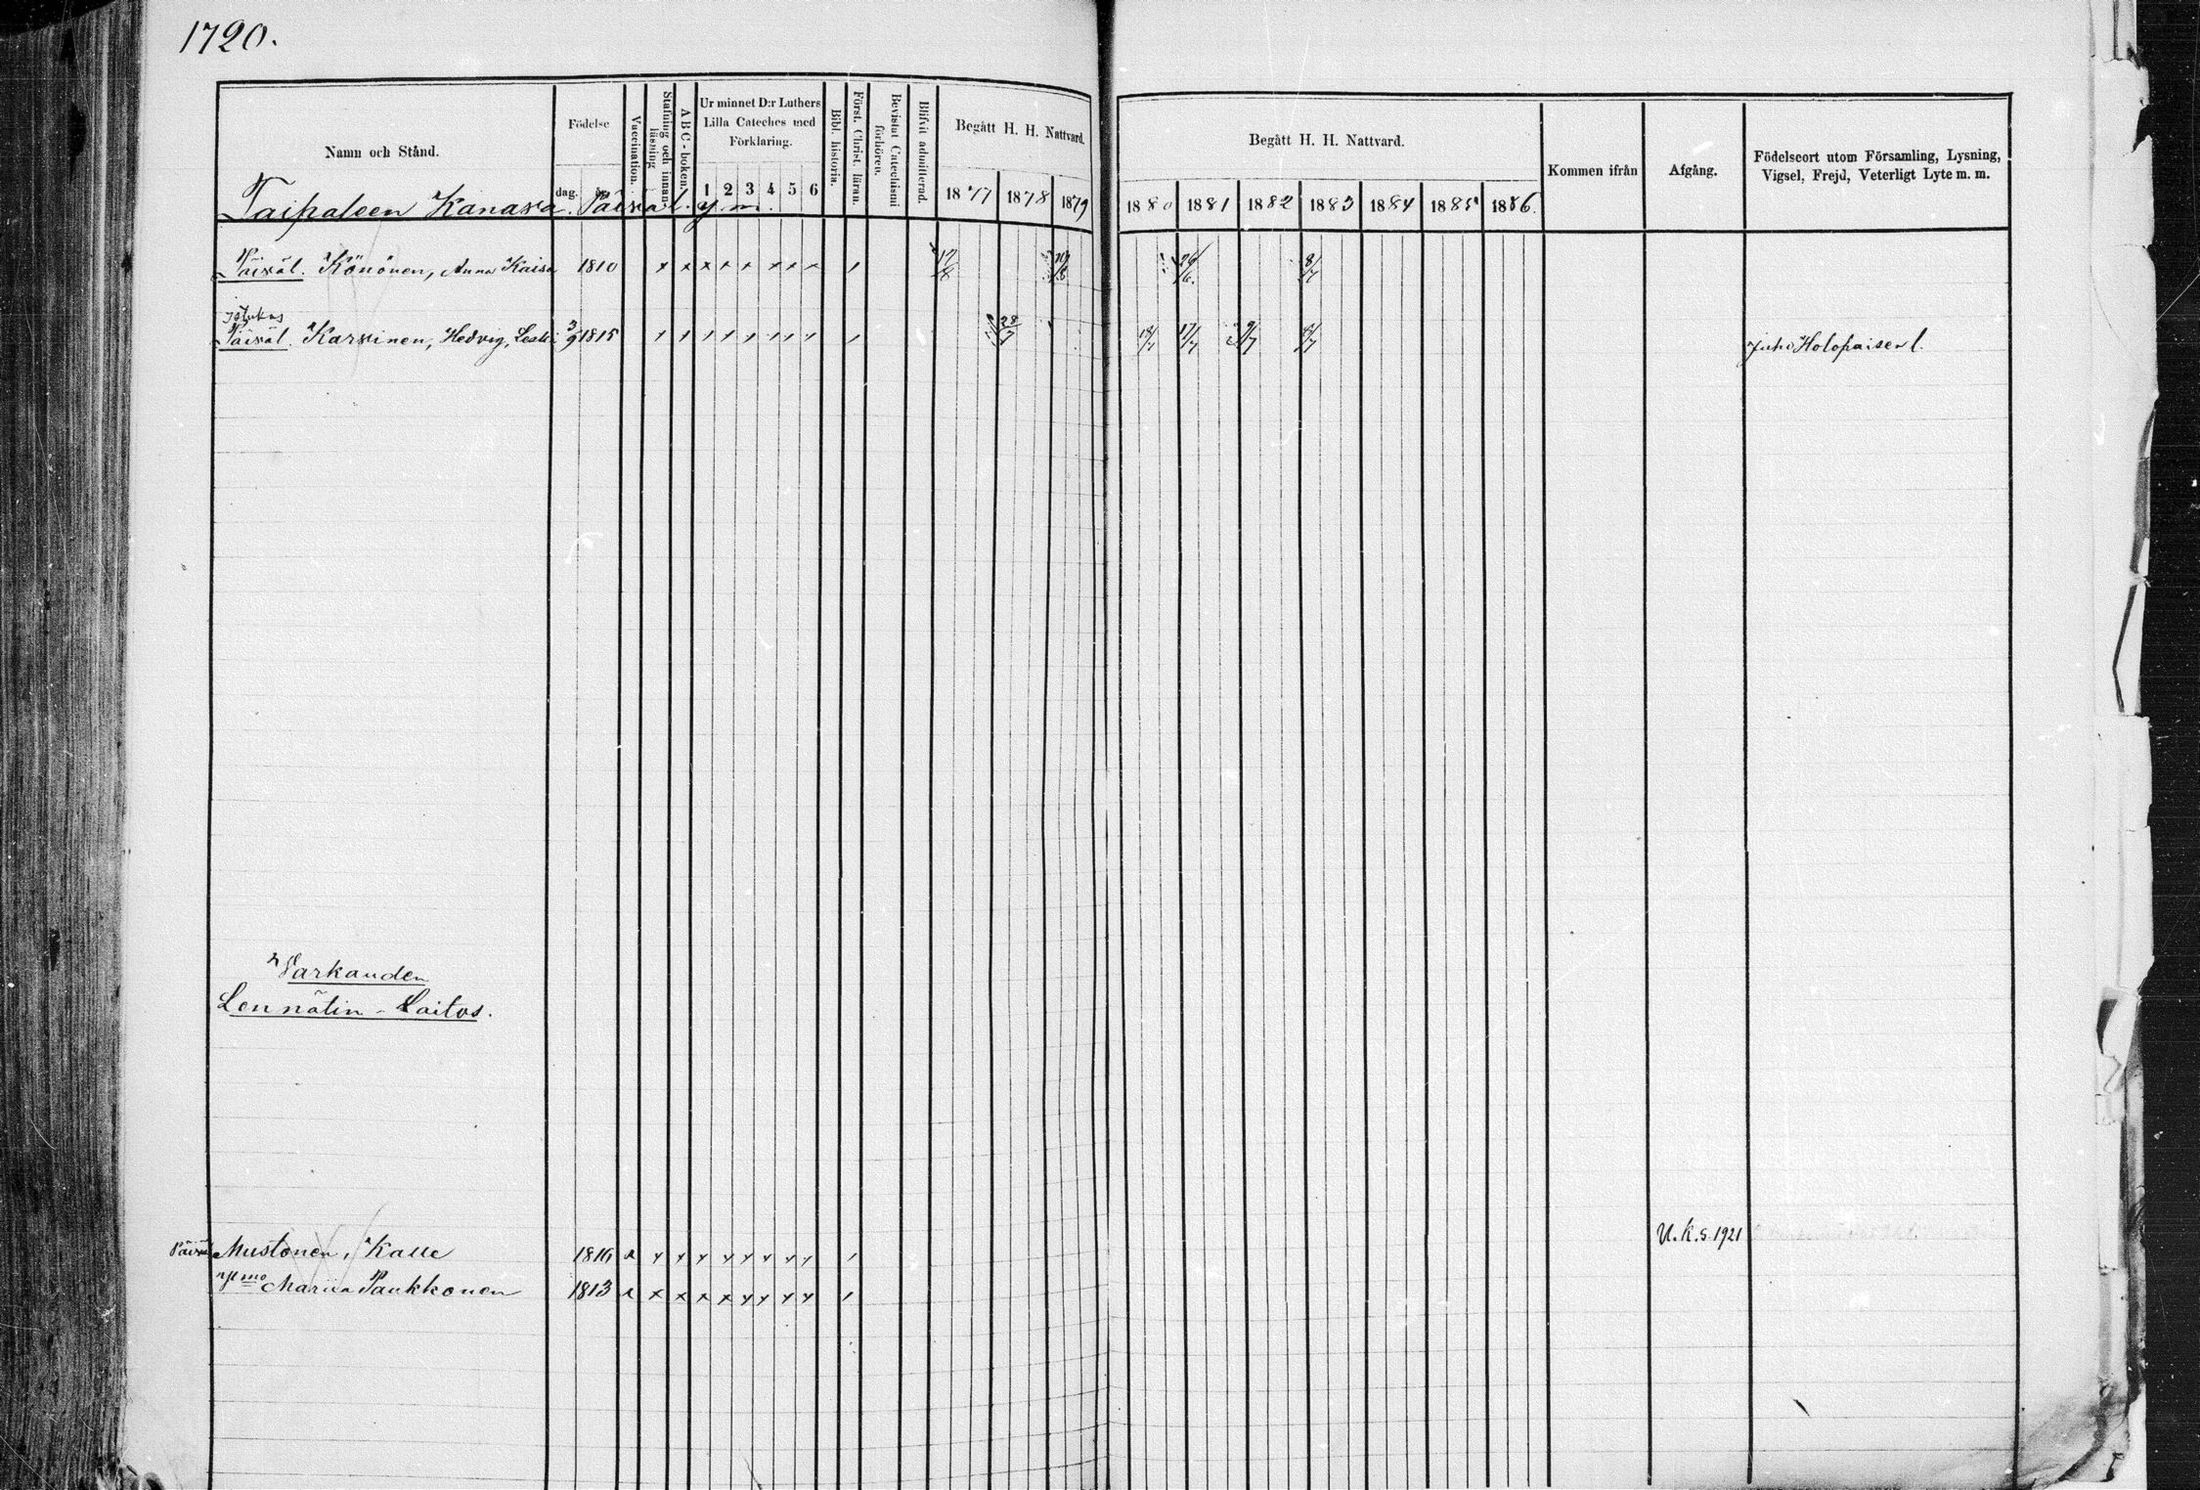 1720.
Namn och Stånd.
Födelse
dag. år.
Vaccination.
Stafning och innan-läsning
A B C - boken.
Ur minnet D:r Luthers
Lilla Cateches med
Förklaring.
1 2 3 4 5 6
Bibl. historia.
Först. Christ. läran.
Bevistat Catechismi förhören.
Blifvit admitterad.
Begått H. H. Nattvard.
1877 1878 1879
Begått H. H. Nattvard.
1880 1881 1882 1883 1884 1885 1886.
Kommen ifrån
Afgång.
Födelseort utom Församling, Lysning,
Vigsel, Frejd, Veterligt Lyte m. m.
Taipaleen Kanava. Päiväl. y. m.
Päiväl. Könönen, Anna Kaisa 1810 x x x x x x x x / 17/8 26/6. 8/7
Itukas
Päiväl. Karvinen, Hedvig, Leski 3/9 1815 28/7 18/7 17/7 9/7 8/7 Juho Holopaisen l.
Varkauden
Lennätin-Laitos.
Mustonen, Kalle U.k.s. 1921
Mariia Paukkonen 1813 x x x x x x x x x /